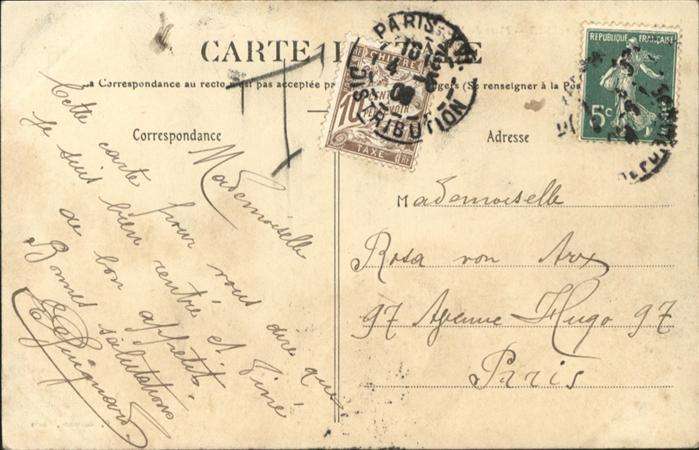 CARTE
La Correspondance au recto n'est pas acceptée p
gers (Se renseigner à la Pos
Correspondance
Adresse
T
CHIFFRE
10
TAXE
PARIS
DISTRIBUTION
REPUBLIQUE FRANÇAISE
5c
Mademoiselle
Cette carte pour vous dire que
je suis bien rentrée et diné
de bon appetit.
Bonnes salutations
E Guignard
Mademoiselle
Rosa von Arx
97 Avenue Hugo 97
Paris